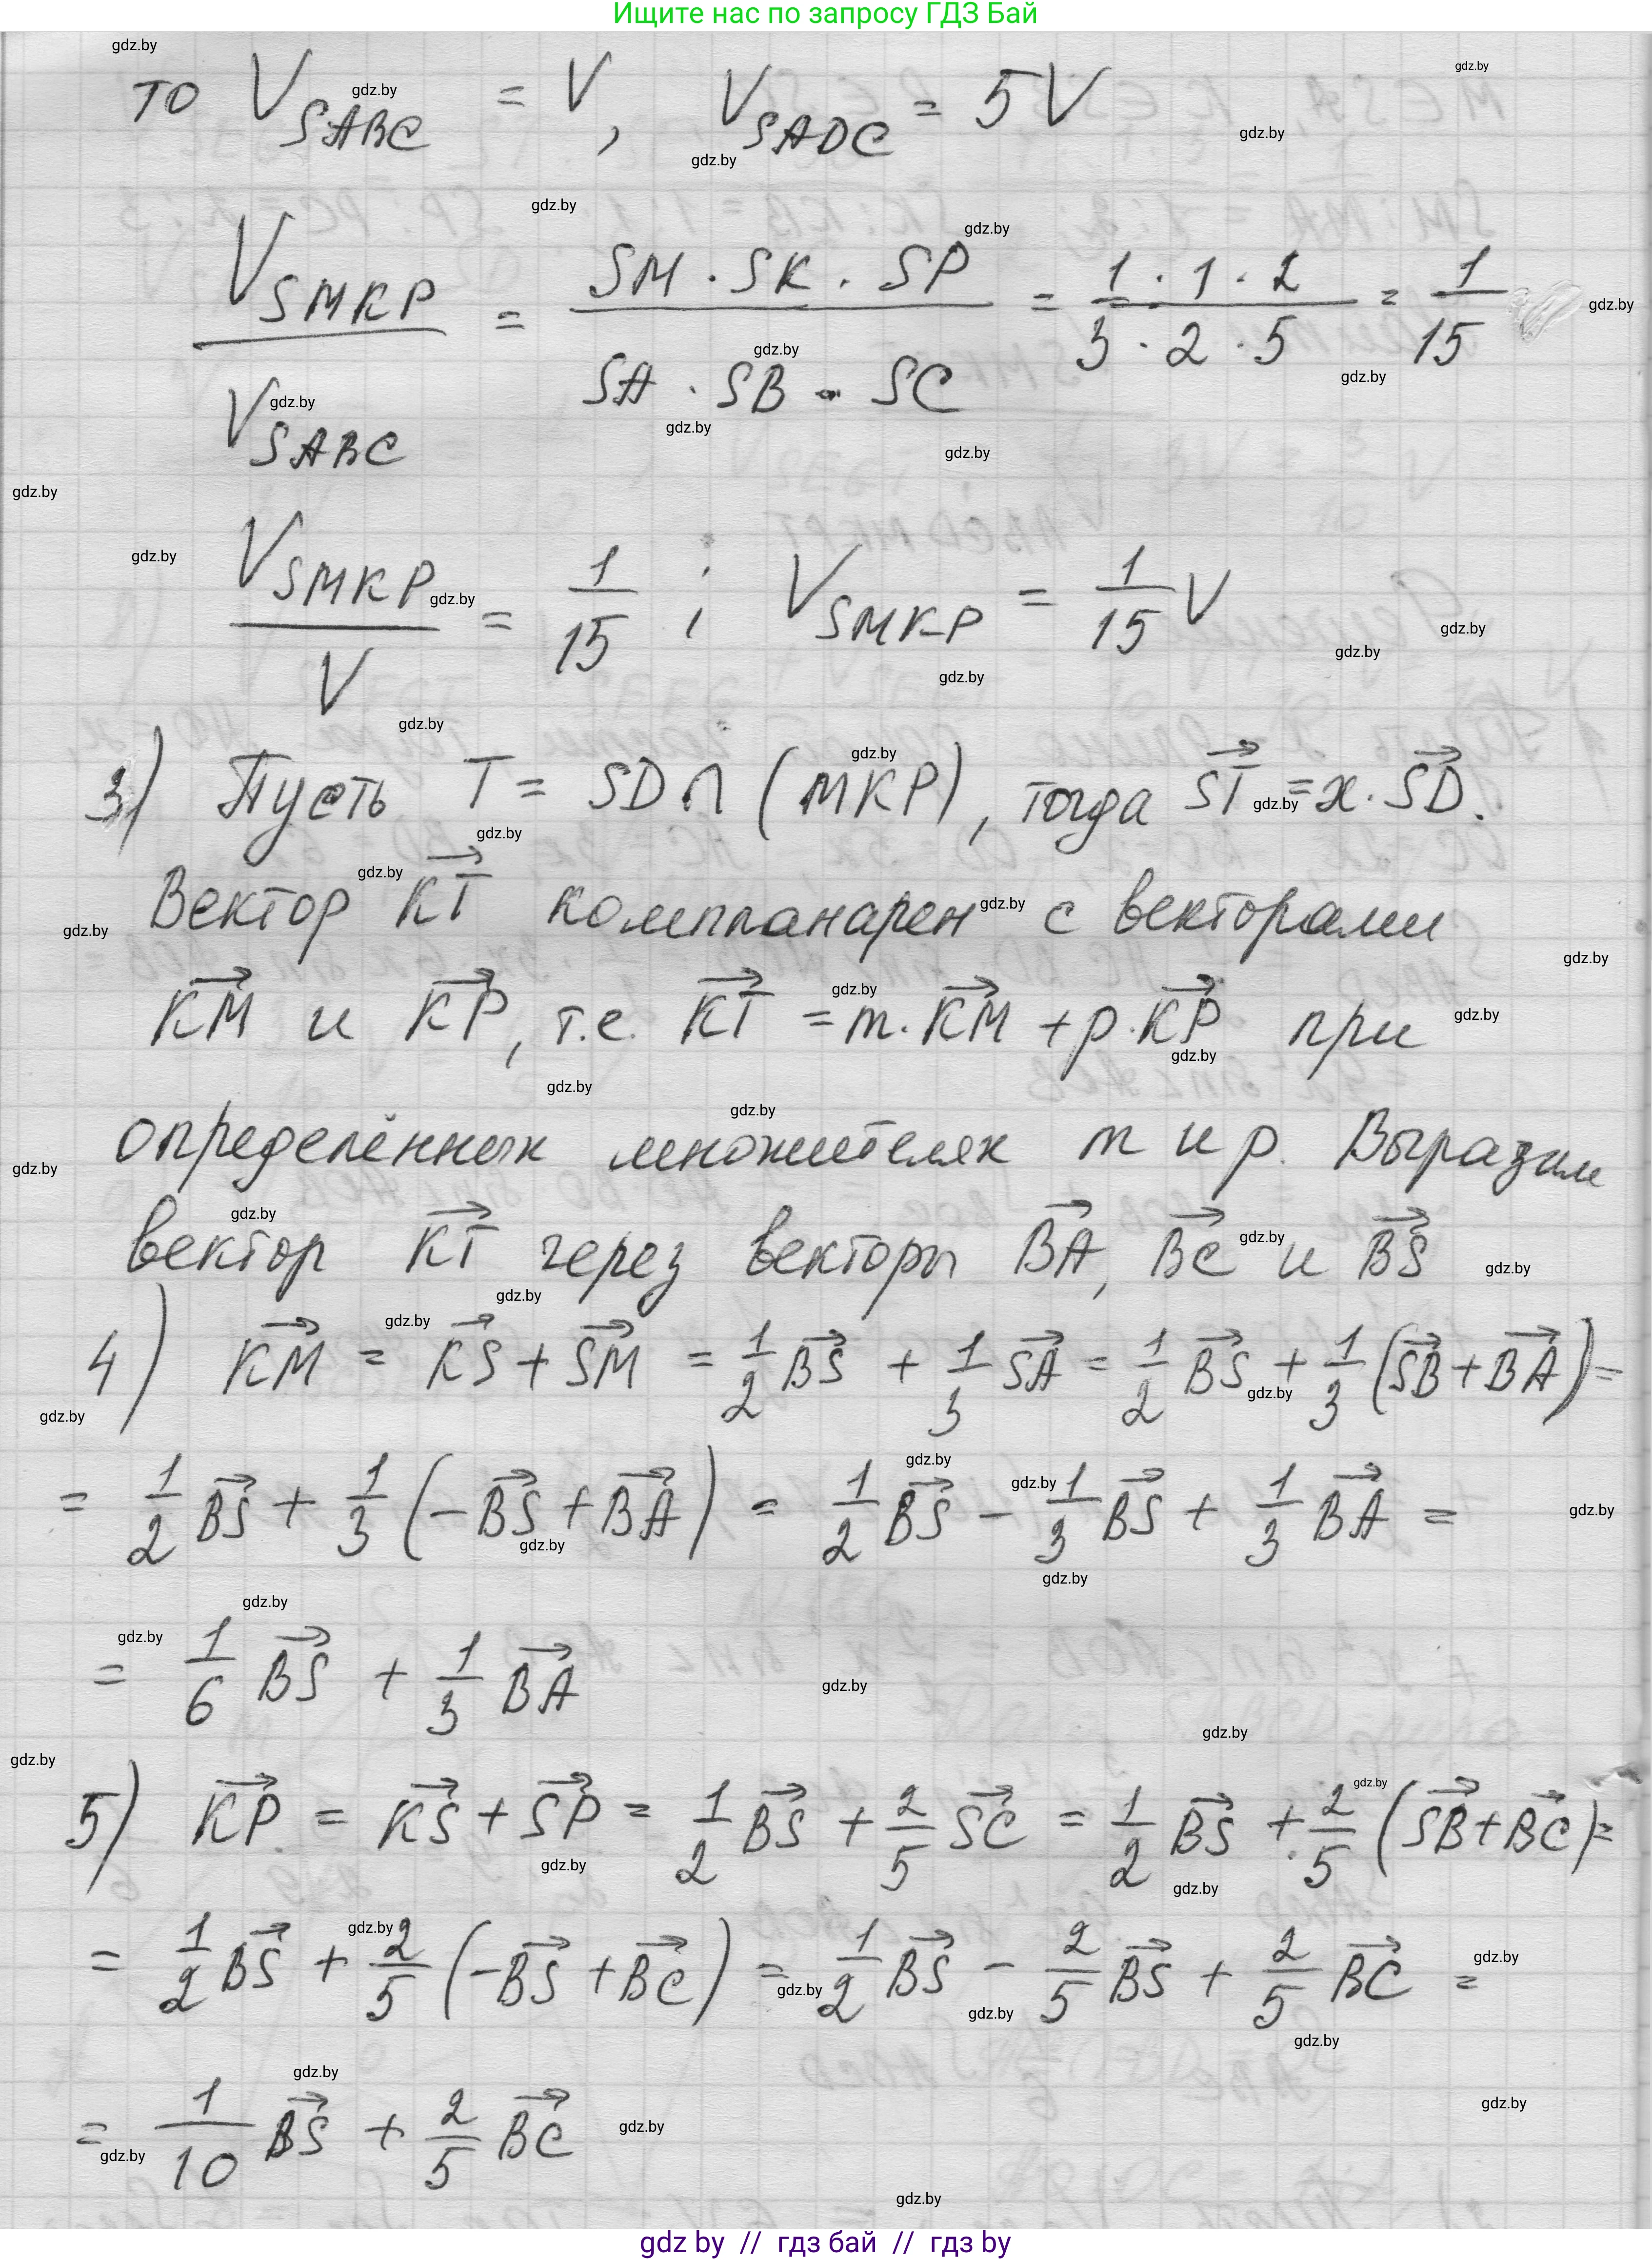 Ищите нас по запросу ГДЗ Бай
то V_SABC = V, V_SADC = 5V
V_SMKP / V_SABC = (SM · SK · SP) / (SA · SB · SC) = (1 · 1 · 2) / (3 · 2 · 5) = 1/15
V_SMKP / V = 1/15 ; V_SMKP = 1/15 V
3) Пусть T = SD ∩ (MKP), тогда ST→ = x · SD→.
Вектор KT→ компланарен с векторами
KM→ и KP→, т.е. KT→ = m · KM→ + p · KP→ при
определённых множителях m и p. Выразим
вектор KT→ через векторы BA→, BC→ и BS→
4) KM→ = KS→ + SM→ = 1/2 BS→ + 1/3 SA→ = 1/2 BS→ + 1/3 (SB→ + BA→) =
= 1/2 BS→ + 1/3 (−BS→ + BA→) = 1/2 BS→ − 1/3 BS→ + 1/3 BA→ =
= 1/6 BS→ + 1/3 BA→
5) KP→ = KS→ + SP→ = 1/2 BS→ + 2/5 SC→ = 1/2 BS→ + 2/5 (SB→ + BC→) =
= 1/2 BS→ + 2/5 (−BS→ + BC→) = 1/2 BS→ − 2/5 BS→ + 2/5 BC→ =
= 1/10 BS→ + 2/5 BC→
gdz by // гдз бай // гдз by